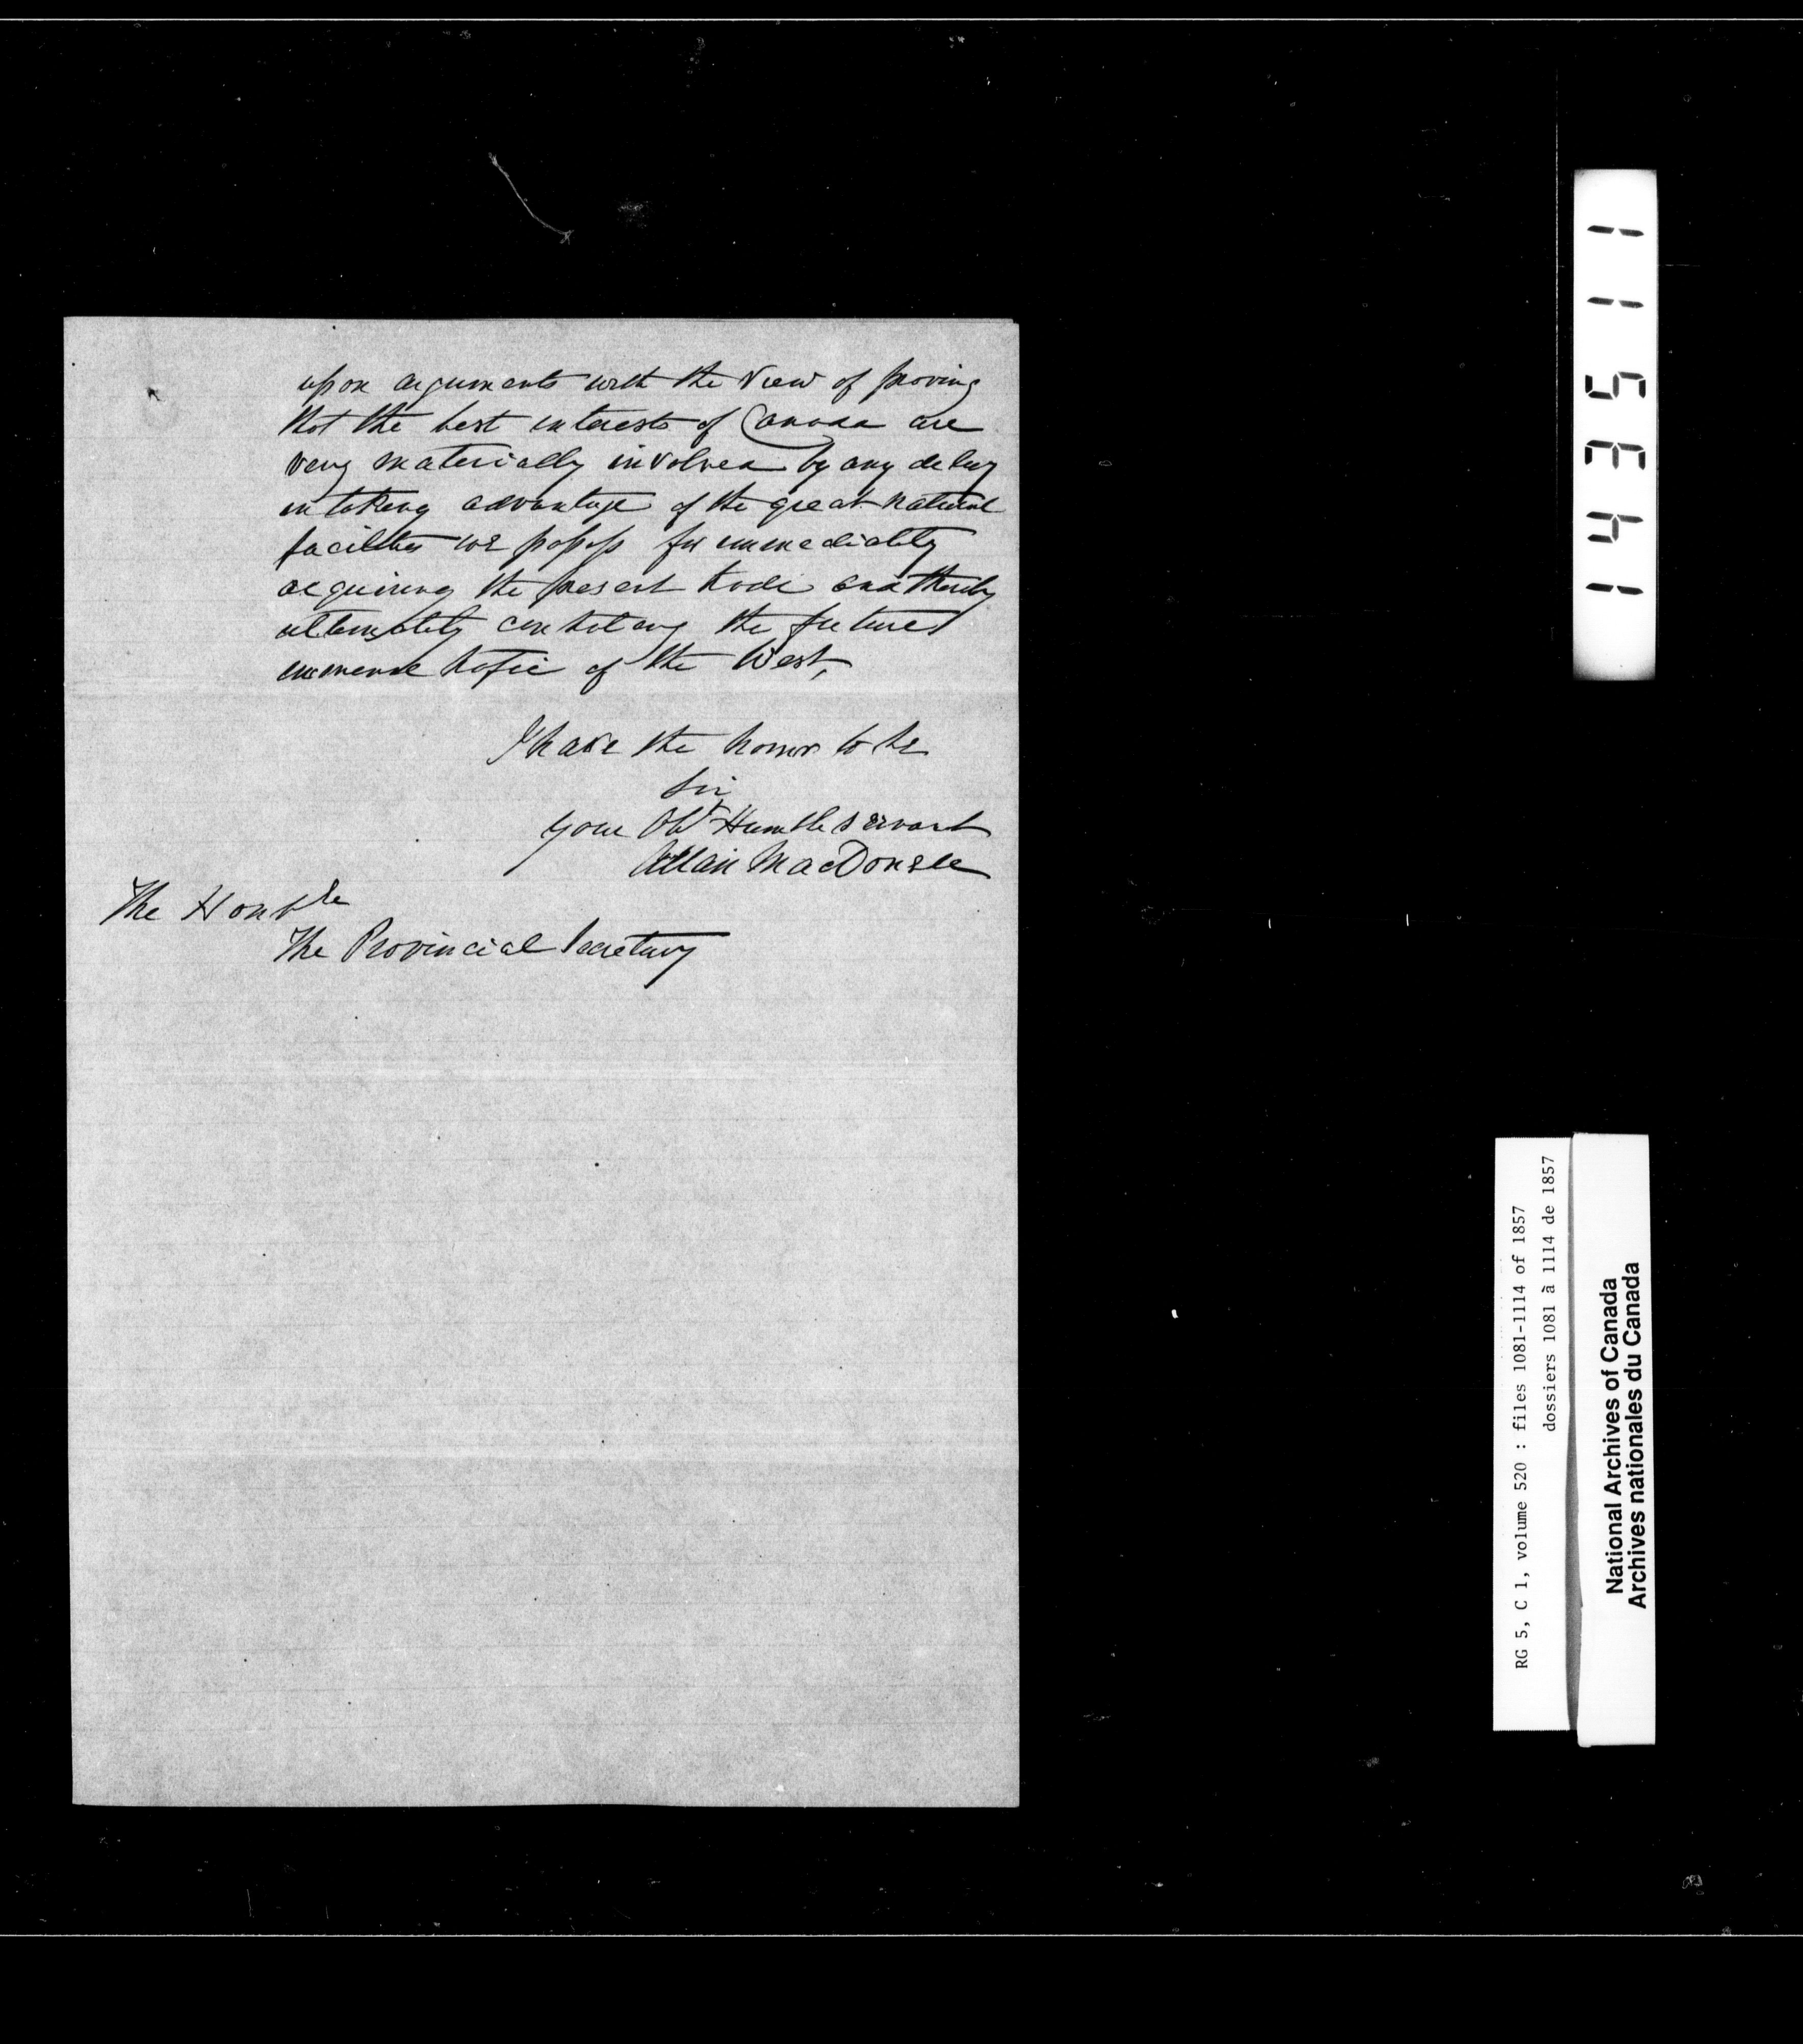 upon arguments with the view of proving
that the best interests of Canada are
very materially involved by any delay
in taking advantage of the great natural
facilities we possess for immediately
acquiring the present trade and thereby
ultimately controling the future
immense trafic of the West,
I have the honor to be
Sir
your Obt Humble servant
Allan MacDonell
The Honble
The Provincial Secretary
1 4 3 5 1 1
RG 5, C 1, volume 520 : files 1081-1114 of 1857
dossiers 1081 à 1114 de 1857
National Archives of Canada
Archives nationales du Canada